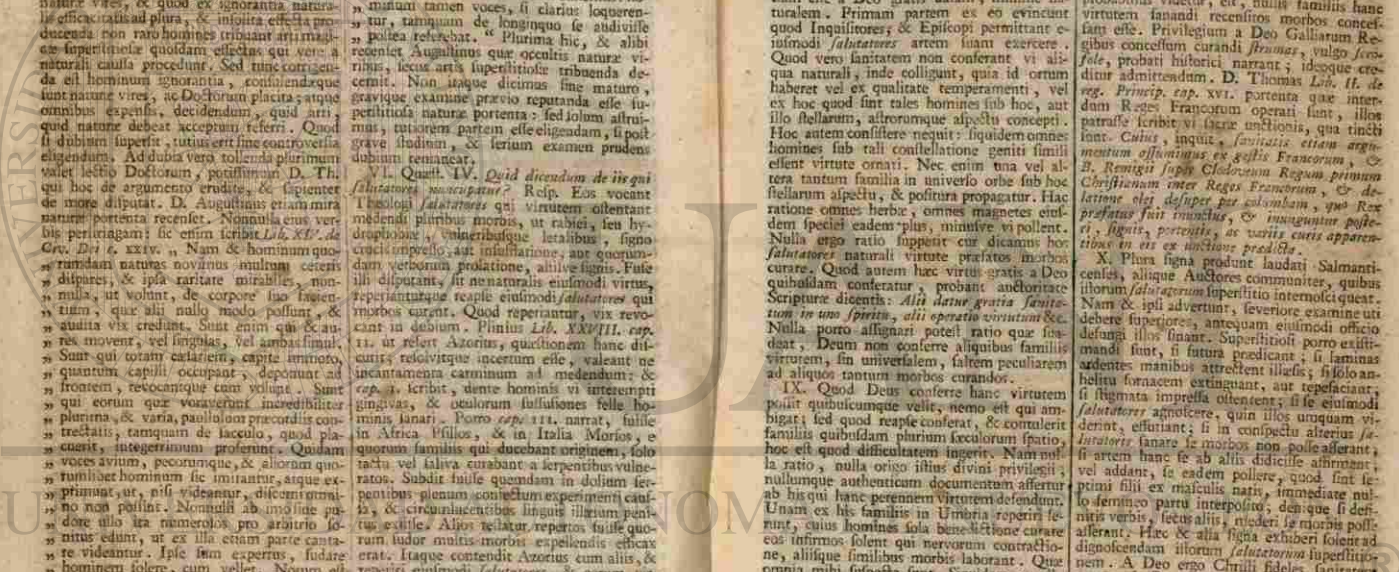 naturæ vires, & quod ex ignorantia natura-
lis efficacitatis ad plura, & insolita effecta pro-
ducenda non raro homines tribuant arti magi-
cæ superstitiosæ quosdam effectus qui vere a
naturali caussa procedunt. Sed tunc corrigen-
da est hominum ignorantia, consulendæque
sunt naturæ vires, ac Doctorum placita; atque
omnibus expensis, decidendum, quid arti,
quid naturæ debeat acceptum referri. Quod
si dubium supersit, tutius erit sine controversia
eligendum. Ad dubia vero tollenda plurimum
valet lectio Doctorum, potissimum D. Th.
qui hoc de argumento erudite, & sapienter
de more disputat. D. Augustinus etiam mira
naturæ portenta recenset. Nonnulla ejus ver-
bis perstringam: sic enim scribit Lib. XIV. de
Civ. Dei c. XXIV. „ Nam & hominum quo-
„ rumdam naturas novimus multum ceteris
„ dispares, & ipsa raritate mirabiles, non-
„ nulla, ut volunt, de corpore suo facien-
„ tium, quæ alii nullo modo possunt, &
„ audita vix credunt. Sunt enim qui & au-
„ res movent, vel singulas, vel ambas simul.
„ Sunt qui totam cæsariem, capite immoto,
„ quantum capilli occupant, deponunt ad
„ frontem, revocantque cum volunt. Sunt
„ qui eorum quæ voraverunt incredibiliter
„ plurima, & varia, paullulum præcordiis con-
„ trectatis, tamquam de sacculo, quod pla-
„ cuerit, integerrimum proferunt. Quidam
„ voces avium, pecorumque, & aliorum quo-
„ rumlibet hominum sic imitantur, atque ex-
„ primunt, ut, nisi videantur, discerni omni-
„ no non possint. Nonnulli ab imo sine pu-
„ dore ullo ita numerosos pro arbitrio so-
„ nitus edunt, ut ex illa etiam parte canta-
„ re videantur. Ipse sum expertus, sudare
„ hominem solere, cum vellet. Notum est
„ minum tamen voces, si clarius loqueren-
„ tur, tamquam de longinquo se audivisse
„ postea referebat. “ Plurima hic, & alibi
recenset Augustinus quæ occultis naturæ vi-
ribus, secus artis superstitiosæ tribuenda de-
cernit. Non itaque dicimus sine maturo,
gravique examine prævio reputanda esse su-
perstitiosa naturæ portenta: sed solum astrui-
mus, tutiorem partem esse eligendam, si post
grave studium, & serium examen prudens
dubium remaneat.
VI. Quæst. IV. Quid dicendum de iis qui
salutatores nuncupantur? Resp. Eos vocant
Theologi salutatores qui virtutem ostentant
medendi pluribus morbis, ut rabiei, seu hy-
drophobiæ, vulneribusque letalibus, signo
crucis impresso, aut insufflatione, aut quorum-
dam verborum prolatione, aliisve signis. Fuse
illi disputant, sit ne naturalis eiusmodi virtus,
reperianturque reapse eiusmodi salutatores qui
morbos curent. Quod reperiantur, vix revo-
cant in dubium. Plinius Lib. XXVIII. cap.
II. ut refert Azorius, quæstionem hanc dis-
cutit; resolvitque incertum esse, valeant ne
incantamenta carminum ad medendum: &
cap. I. scribit, dente hominis vi interempti
gingivas, & oculorum suffusiones felle ho-
minis sanari. Porro cap. III. narrat, fuisse
in Africa Psillos, & in Italia Morsos, e
quorum familiis qui ducebant originem, solo
tactu vel saliva curabant a serpentibus vulne-
ratos. Subdit fuisse quemdam in dolium ser-
pentibus plenum coniectum experimenti caus-
sa, & circumlucentibus linguis illæsum peni-
tus exiisse. Alios testatur repertos fuisse quo-
rum sudor multis morbis expellendis efficax
erat. Itaque contendit Azorius cum aliis, &
reperiri eiusmodi salutatores, &
turalem. Primam partem ex eo evincunt
quod Inquisitores, & Episcopi permittant e-
iusmodi salutatores artem suam exercere.
Quod vero sanitatem non conferant vi ali-
qua naturali, inde colligunt, quia id ortum
haberet vel ex qualitate temperamenti, vel
ex hoc quod sint tales homines sub hoc, aut
illo stellarum, astrorumque aspectu concepti.
Hoc autem consistere nequit: siquidem omnes
homines sub tali constellatione geniti simili
essent virtute ornati. Nec enim una vel al-
tera tantum familia in universo orbe sub hoc
stellarum aspectu, & positura propagatur. Hac
ratione omnes herbæ, omnes magnetes eius-
dem speciei eadem plus, minusve vi pollent.
Nulla ergo ratio suppetit cur dicamus hos
salutatores naturali virtute præfatos morbos
curare. Quod autem hæc virtus gratis a Deo
quibusdam conferatur, probant auctoritate
Scripturæ dicentis: Alii datur gratia sanita-
tum in uno spiritu, alii operatio virtutum &c.
Nulla porro assignari potest ratio quæ sua-
deat, Deum non conferre aliquibus familiis
virtutem, sin universalem, saltem peculiarem
ad aliquos tantum morbos curandos.
IX. Quod Deus conferre hanc virtutem
possit quibuscumque velit, nemo est qui am-
bigat; sed quod reapse conferat, & contulerit
familiis quibusdam plurium sæculorum spatio,
hoc est quod difficultatem ingerit. Nam nul-
la ratio, nulla origo istius divini privilegii;
nullumque authenticum documentum affertur
ab his qui hanc perennem virtutem defendunt.
Unam ex his familiis in Umbria reperiri fe-
runt, cuius homines sola benedictione curare
eos infirmos solent qui nervorum contractio-
ne, aliisque similibus morbis laborant. Quæ
omnia mihi suspecta sunt.
probabilius videtur, est, nullis familiis hanc
virtutem sanandi recensitos morbos conces-
sam esse. Privilegium a Deo Galliarum Re-
gibus concessum curandi strumas, vulgo scro-
fole, probati historici narrant; ideoque cre-
ditur admittendum. D. Thomas Lib. II. de
reg. Princip. cap. XVI. portenta quæ inter-
dum Reges Francorum operati sunt, illos
patrasse scribit vi sacræ unctionis, qua tincti
sunt. Cuius, inquit, sanitatis etiam argu-
mentum assumimus ex gestis Francorum, &
B. Remigii super Clodoveum Regum primum
Christianum inter Reges Francorum, & de-
latione olei desuper per columbam, quo Rex
præfatus fuit inunctus, & inunguntur poste-
ri, signis, portentis, ac variis curis apparen-
tibus in eis ex unctione prædicta.
X. Plura signa produnt laudati Salmanti-
censes, aliique Auctores communiter, quibus
illorum salutatorum superstitio internosci queat.
Nam & ipsi advertunt, severiore examine uti
debere superiores, antequam eiusmodi officio
defungi illos sinant. Superstitiosi porro existi-
mandi sunt, si futura prædicant; si laminas
ardentes manibus attrectent illæsis; si solo an-
helitu fornacem extinguant, aut tepefaciant;
si stigmata impressa ostentent; si se eiusmodi
salutatores agnoscere, quin illos umquam vi-
derint, effutiant; si in conspectu alterius sa-
lutatores sanare se morbos non posse asserant,
si artem hanc se ab aliis didicisse affirment;
vel addant, se eadem pollere, quod sint se-
ptimi filii ex masculis natis, immediate nul-
lo femineo partu interposito; denique si defi-
nitis verbis, secus aliis, mederi se morbis posse
asserant. Hæc & alia signa exhiberi solent ad
dignoscendam illorum salutatorum superstitio-
nem. A Deo ergo Christi fideles sanitatem